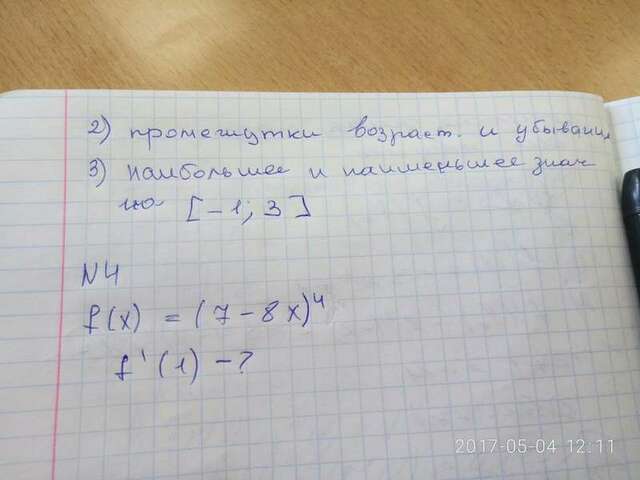 2) промежутки возраст. и убывания
3) наибольшее и наименьшее знач
на [-1; 3]
N4
f(x) = (7-8x)⁴
f'(1) - ?
2017-05-04 12:11